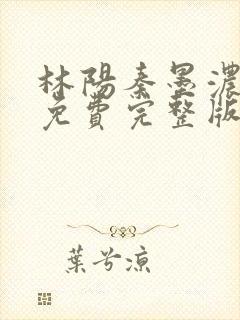 林陽秦墨濃
免費完整版
葉兮涼